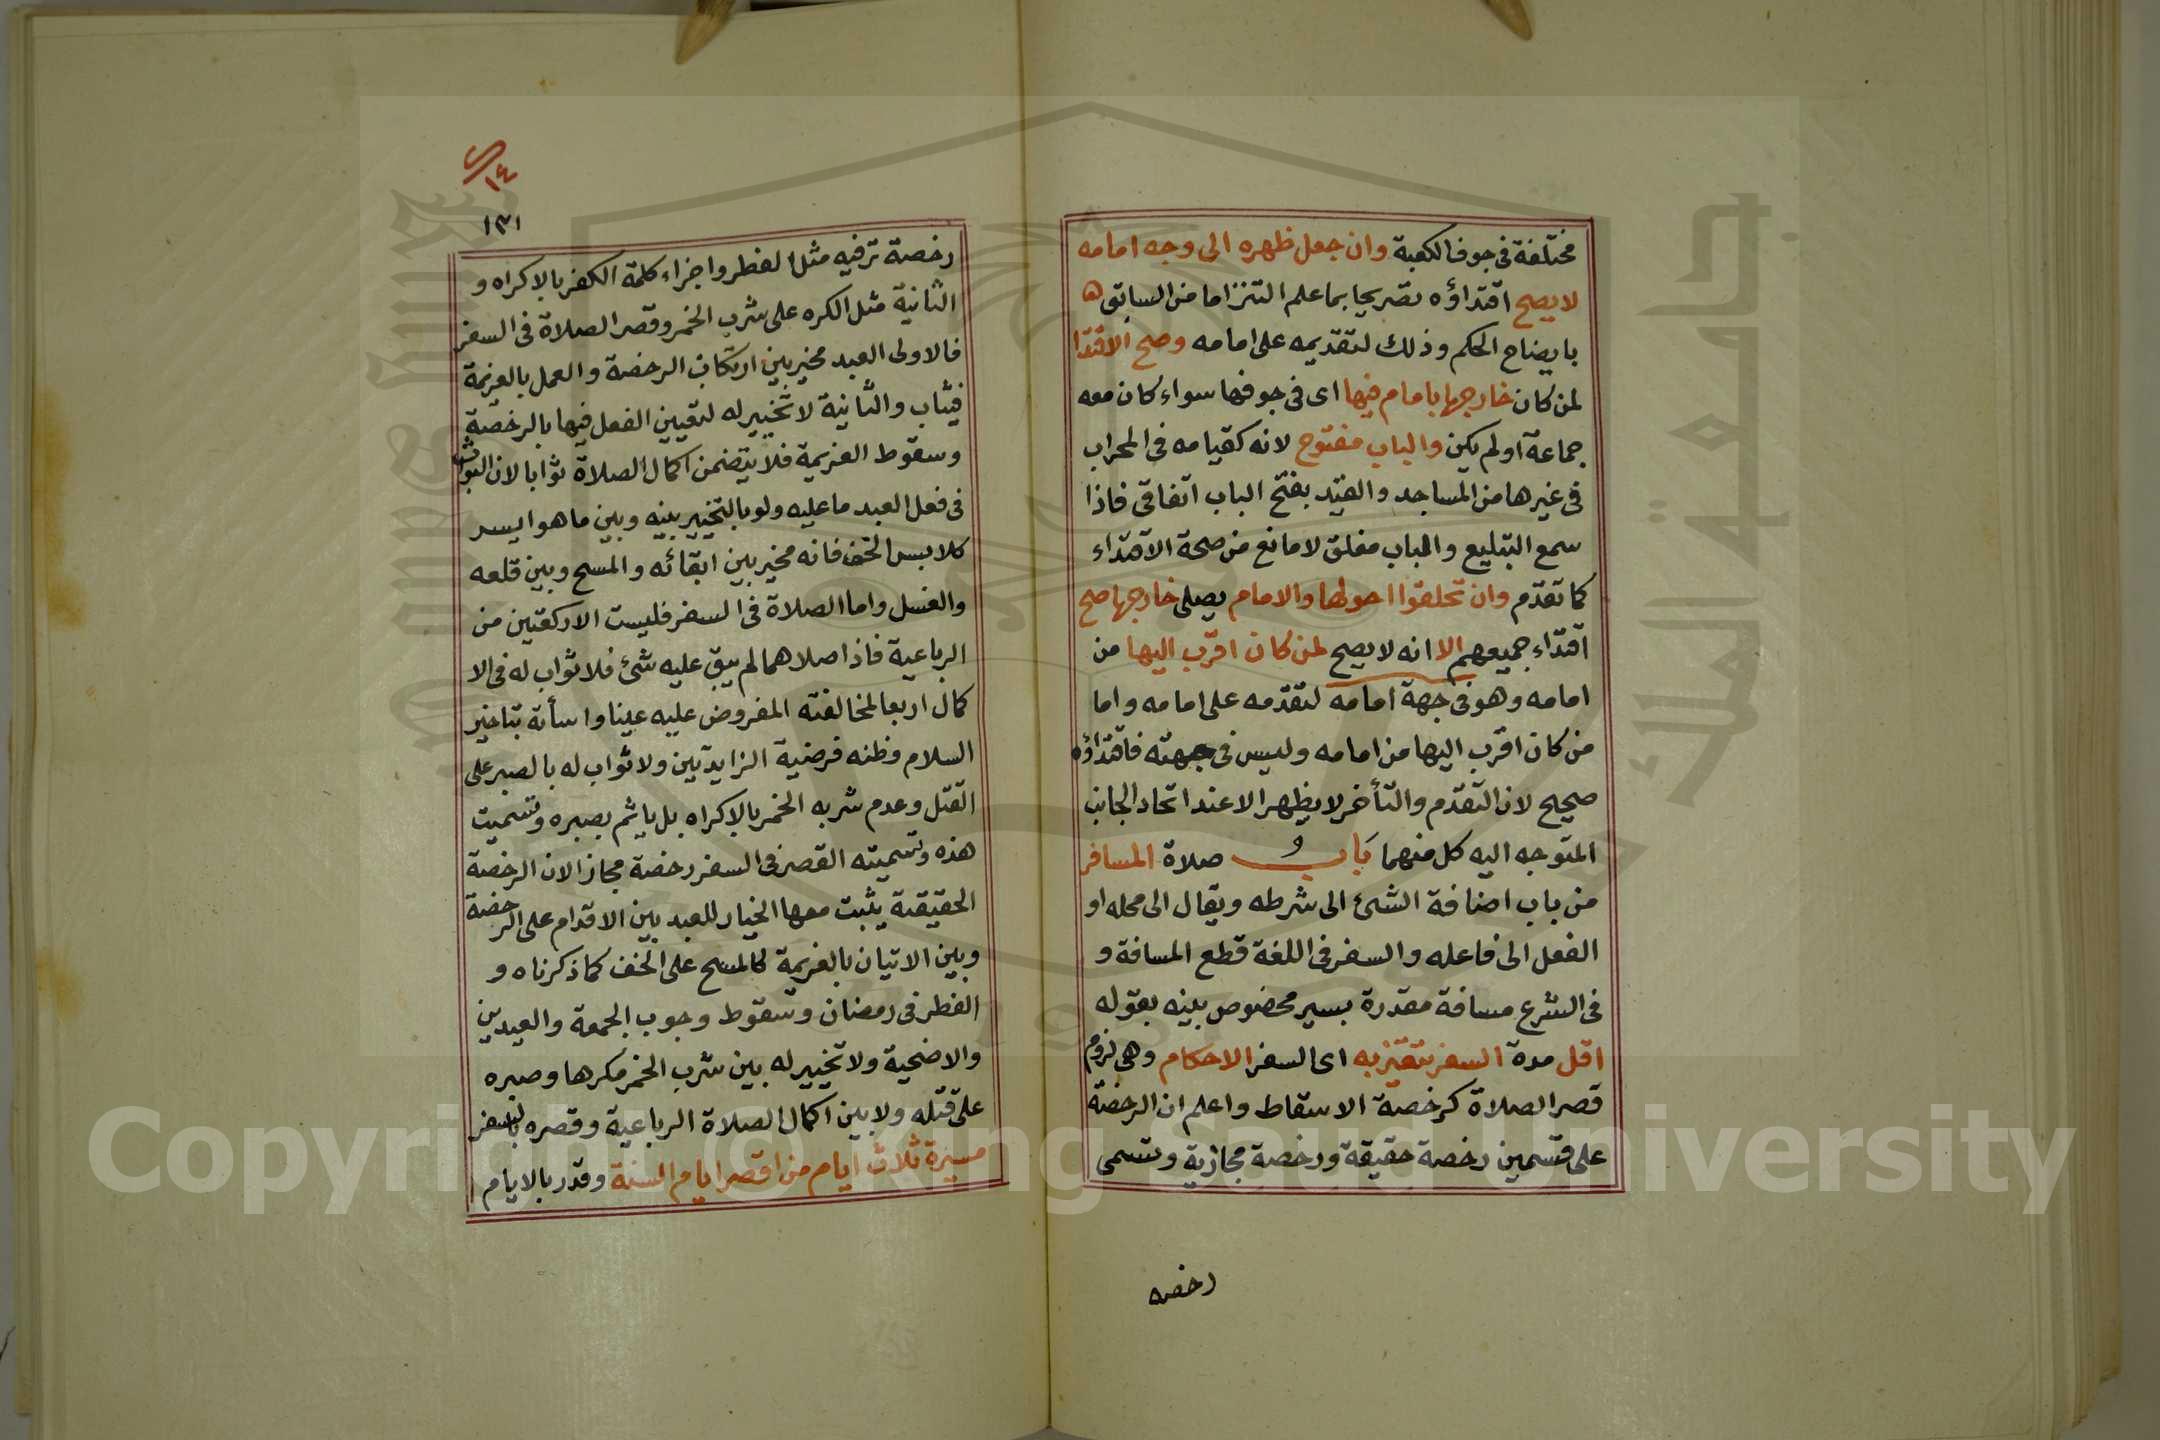 مختلفة فى جوف الكعبة وان جعل ظهره الى وجه امامه
لا يصح اقتداؤه تصريحا بما علم التزاما من السابق ها
بايضاح الحكم وذلك لتقديمه على امامه وصح الاقتدا
لمن كان خارجها بامام فيها اى فى جوفها سواء كان معه
جماعة او لم يكن والباب مفتوح لانه كقيامه فى المحراب
فى غيرها من المساجد والقيد بفتح الباب اتفاقى فاذا
سمع التبليغ والباب مغلق لا مانع من صحة الاقتداء
كما تقدم وان تحلقوا حولها والامام يصلى خارجها صح
اقتداء جميعهم الا انه لا يصح لمن كان اقرب اليها من
امامه وهو فى جهة امامه لتقدمه على امامه واما
من كان اقرب اليها من امامه وليس فى جهته فاقتداؤه
صحيح لان التقدم والتأخر لا يظهر الا عند اتحاد الجانب
المتوجه اليه كل منهما باب صلاة المسافر
من باب اضافة الشئ الى شرطه ويقال الى محله او
الفعل الى فاعله والسفر فى اللغة قطع المسافة و
فى الشرع مسافة مقدرة بسير مخصوص بينه بقوله
اقل مدة السفر تتغير به اى السفر الاحكام وهى لزوم
قصر الصلاة كرخصة الاسقاط واعلم ان الرخصة
على قسمين رخصة حقيقة ورخصة مجازية وتسمى
رخصه
١٤
١٣١
رخصة ترفيه مثل الفطر واجزاء كلمة الكفر بالاكراه و
الثانية مثل الكره على شرب الخمر وقصر الصلاة فى السفر
فالاولى العبد مخير بين ارتكاب الرخصة والعمل بالعزيمة
فيثاب والثانية لا تخيير له لتعيين الفعل فيها بالرخصة
وسقوط العزيمة فلا يتضمن اكمال الصلاة ثوابا لان الثواب
فى فعل العبد ما عليه ولو بالتخيير بينه وبين ما هو ايسر
كلابس الخف فانه مخير بين ابقائه والمسح وبين قلعه
والغسل واما الصلاة فى السفر فليست الا ركعتين من
الرباعية فاذا صلاهما لم يبق عليه شئ فلا ثواب له فى الا
كمال اربعا لمخالفته المفروض عليه عينا واسأته بتاخير
السلام وظنه فرضية الزايدتين ولا ثواب له بالصبر على
القتل وعدم شربه الخمر بالاكراه بل ياثم بصبره وتسميت
هذه وتسميته القصر فى السفر رخصة مجاز لان الرخصة
الحقيقية يثبت معها الخيار للعبد بين الاقدام على الرخصة
وبين الاتيان بالعزيمة كالمسح على الخف كما ذكرناه و
الفطر فى رمضان وسقوط وجوب الجمعة والعيدين
والاضحية ولا تخيير له بين شرب الخمر مكرها وصبره
على قتله ولا بين اكمال الصلاة الرباعية وقصره بالسفر
مسيرة ثلاث ايام من اقصر ايام السنة وقدر بالايام
Copyright © King Saud University